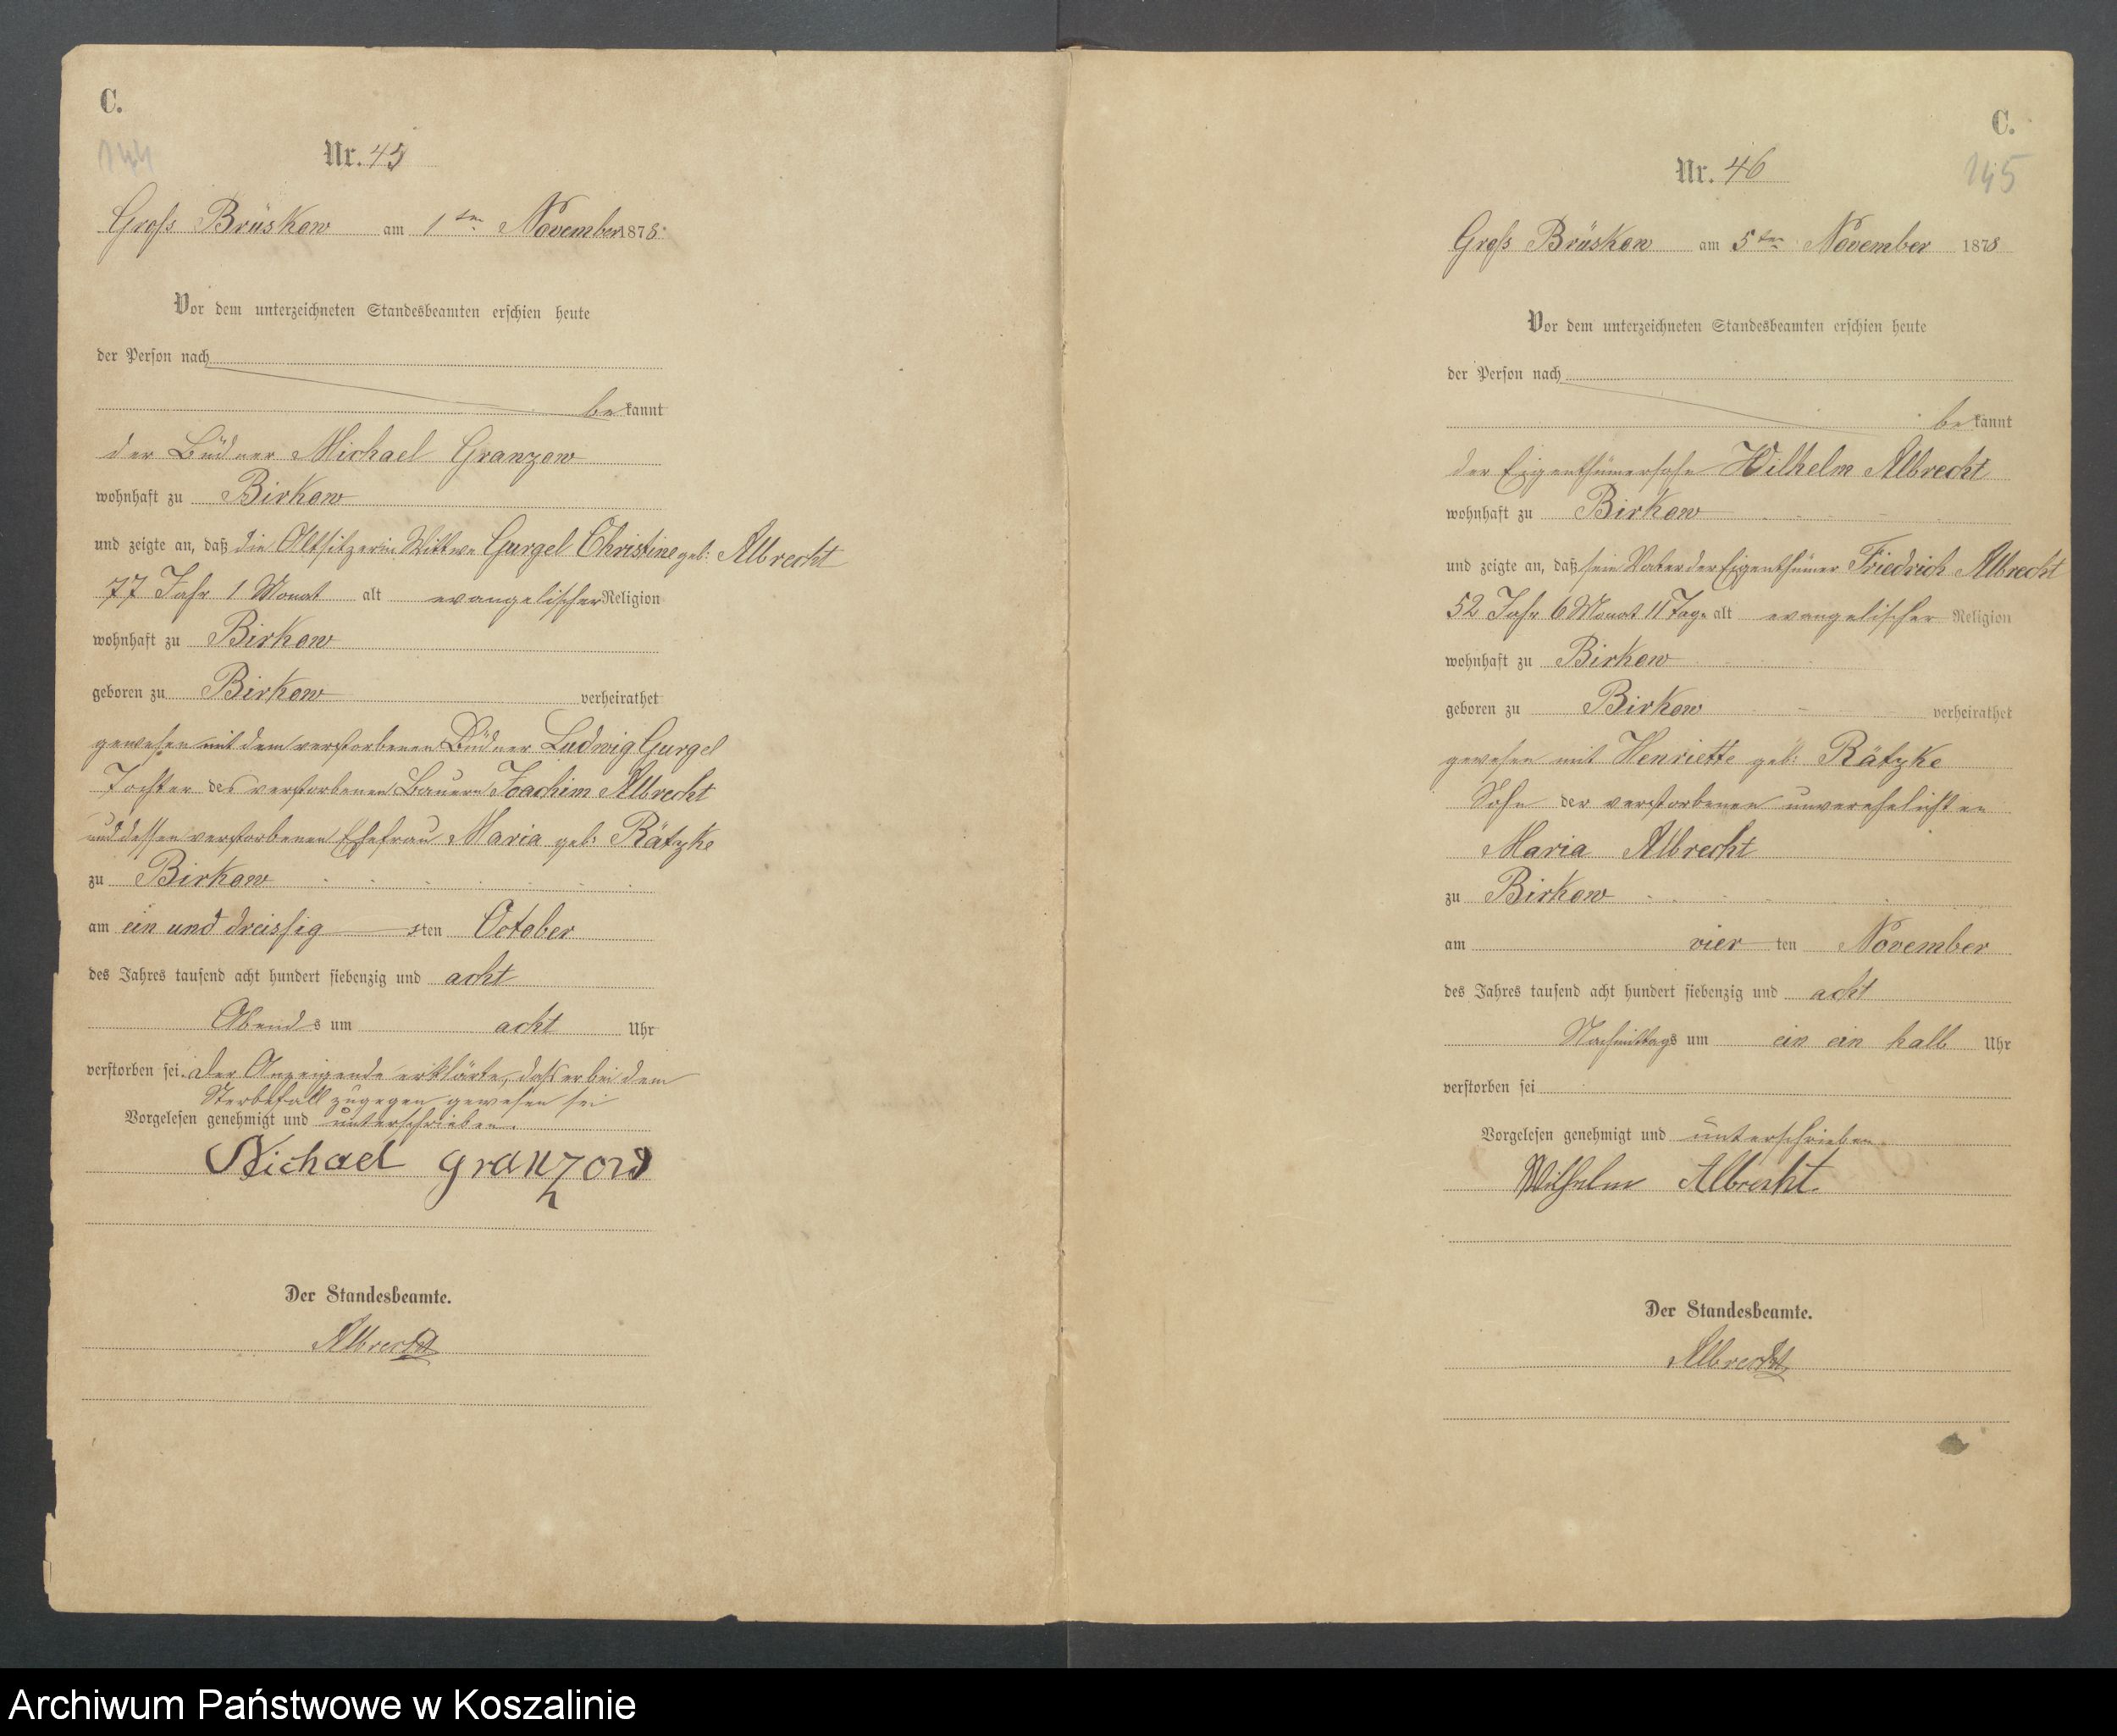 C.
144
Nr. 45
Groß Brüskow am 1ten November 1878.
Vor dem unterzeichneten Standesbeamten erschien heute
der Person nach
bekannt
der Büdner Michael Granzow
wohnhaft zu Birkow
und zeigte an, daß die Altsitzerin Wittwe Gurgel Christine geb: Albrecht
77 Jahr 1 Monat alt evangelischer Religion
wohnhaft zu Birkow
geboren zu Birkow verheirathet
gewesen mit dem verstorbenen Büdner Ludwig Gurgel
Tochter des verstorbenen Bauern Joachim Albrecht
und dessen verstorbenen Ehefrau Maria geb: Rätzke
zu Birkow
am ein und dreissig sten October
des Jahres tausend acht hundert siebenzig und acht
Abends um acht Uhr
verstorben sei. Der Anzeigende erklärte, daß er bei dem
Sterbefall zugegen gewesen sei
Vorgelesen genehmigt und unterschrieben.
Michael Granzow
Der Standesbeamte.
Albrecht
C.
145
Nr. 46
Groß Brüskow am 5ten November 1878
Vor dem unterzeichneten Standesbeamten erschien heute
der Person nach
bekannt
der Eigenthümersohn Wilhelm Albrecht
wohnhaft zu Birkow
und zeigte an, daß sein Vater der Eigenthümer Friedrich Albrecht
52 Jahr 6 Monat 11 Tage alt evangelischer Religion
wohnhaft zu Birkow
geboren zu Birkow verheirathet
gewesen mit Henriette geb: Rätzke
Sohn der verstorbenen unverehelichten
Maria Albrecht
zu Birkow
am vier ten November
des Jahres tausend acht hundert siebenzig und acht
Nachmittags um ein ein halb Uhr
verstorben sei
Vorgelesen genehmigt und unterschrieben.
Wilhelm Albrecht.
Der Standesbeamte.
Albrecht
Archiwum Państwowe w Koszalinie